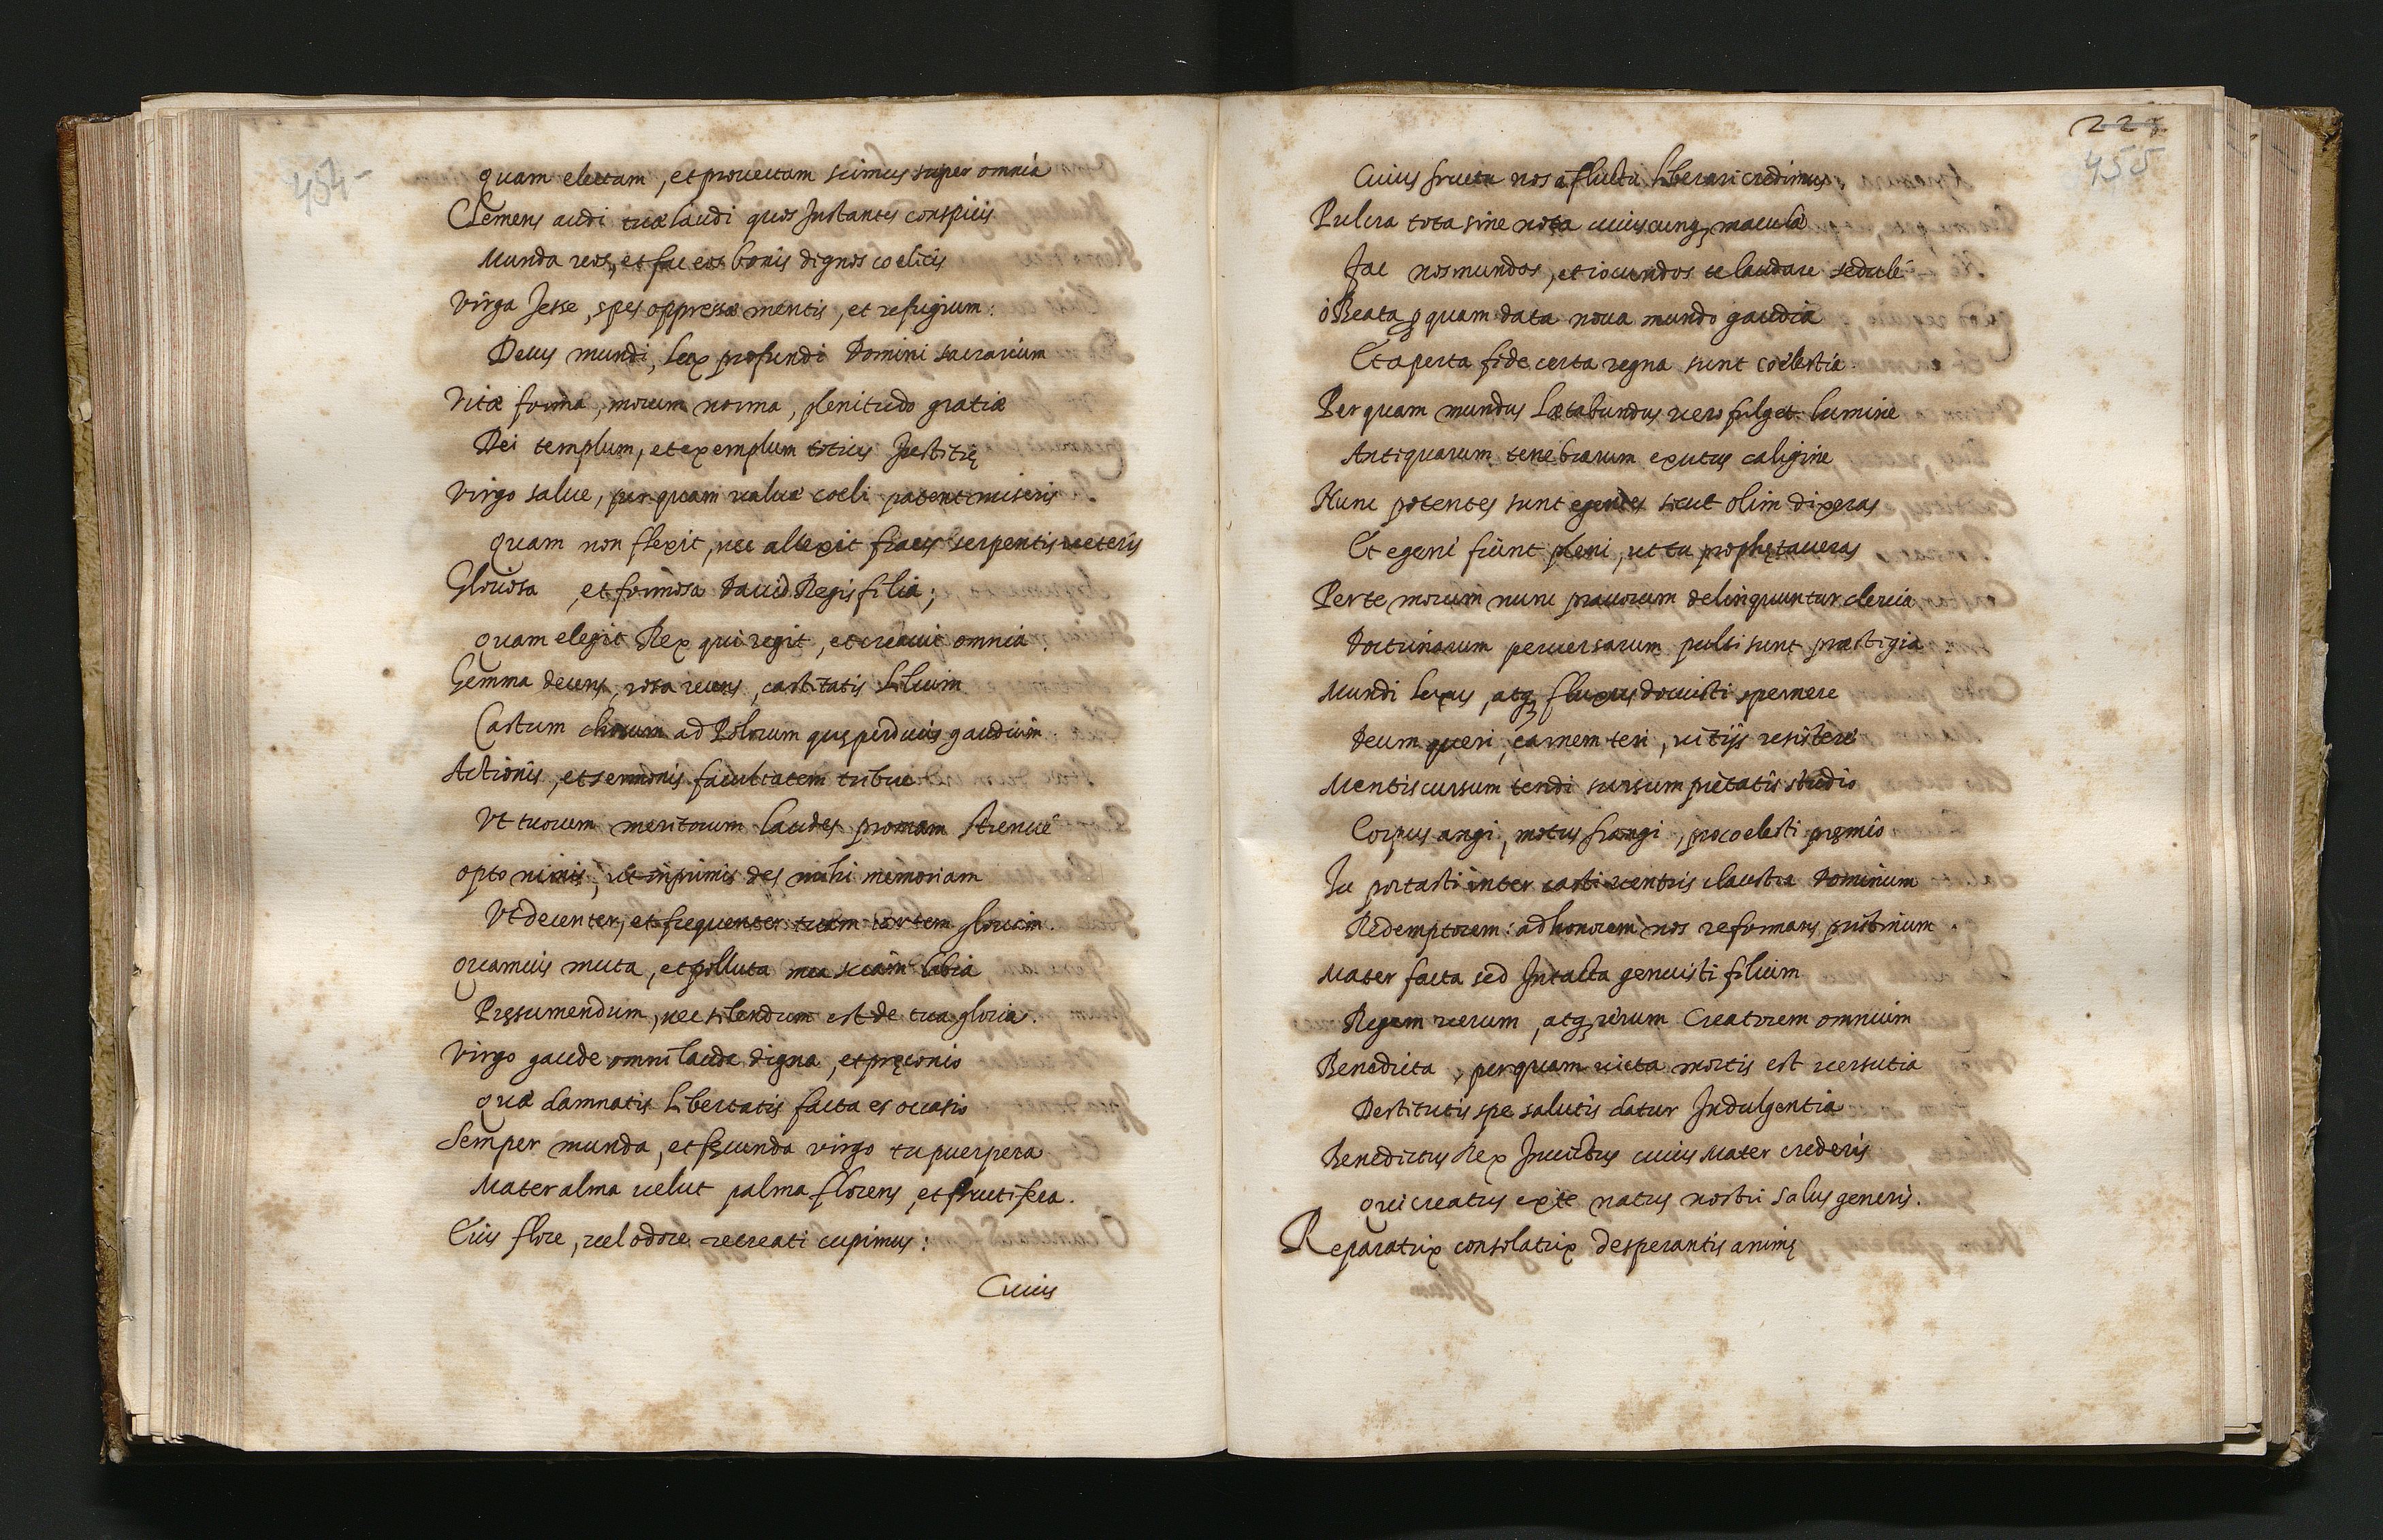 454
quam electam, et prouectam scimus super omnia
Clemens audi tuæ laudi quos Instantes conspicis
Munda reos, et fac eos bonis dignos coelicis
Virga Jesse, spes oppressæ mentis, et refugium:
Decus mundi, lux profundi Domini sacrarium
Vitæ forma, morum norma, plenitudo gratiæ
Dei templum, et exemplum totius Justitię
Virgo salue, per quam valuæ coeli patent miseris
quam non flexit, nec allexit fraus serpentis veteris
Gloriosa, et formosa Dauid Regis filia;
quam elegit Rex qui regit, et creauit omnia.
Gemma decens, rosa recens, castitatis Lilium
Castum chorum ad Polorum quę perducis gaudium.
Actionis, et sermonis facultatem tribue
Vt tuorum meritorum laudes promam strenuè
opto nimis, ut inprimis des mihi memoriam
Vt decenter, et frequenter tuam cortem gloriam.
quamuis muta, et polluta mea sciam labia
Pręsumendum, nec silendum est de tua gloria.
Virgo gaude omni laude digna, et pręconio
quæ damnatis Libertatis facta es occasio
Semper munda, et fęcunda virgo tu puerpera
Mater alma uelut palma florens, et fructifera.
Cuis flore, uel odore recreati cupimus:
Cuius
223
455
Cuius fructu nos à fluctu liberari credimus.
Pulcra tota sine nota cuiuscunq; macula
Fac nos mundos, et iocundos te laudare sedulè
ò Beata p quam data noua mundo gaudia
Et aperta fide certa regna sunt coelestia.
Per quam mundus Lætabundus uero fulget lumine
Antiquarum tenebrarum exutus caligine
Nunc potentes sunt egentes sicut olim dixeras
Et egeni fiunt pleni, ut tu prophętaueras
Per te morum nunc prauorum delinquuntur deuia
Doctrinarum peruersarum pulsi sunt præstigia.
Mundi luxus, atq; fluxus docuisti spernere
Deum queri, carnem teri, uitijs resistere
Mentis cursum tendi sursum pietatis studio
Corpus angi, motus frangi, pro coelesti pręmio
Tu portasti inter casti uentris claustra Dominum
Redemptorem: ad honorem nos reformans pristinum.
Mater facta sed Intacta genuisti filium
Regem uerum, atq; rerum Creatorem omnium
Benedicta, per quam uicta mortis est uersutia
Destitutis spe salutis datur Indulgentia
Benedictus Rex Inuictus cuius Mater crederis
qui creatus ex te natus nostri salus generis.
Reparatrix consolatrix desperantis animę